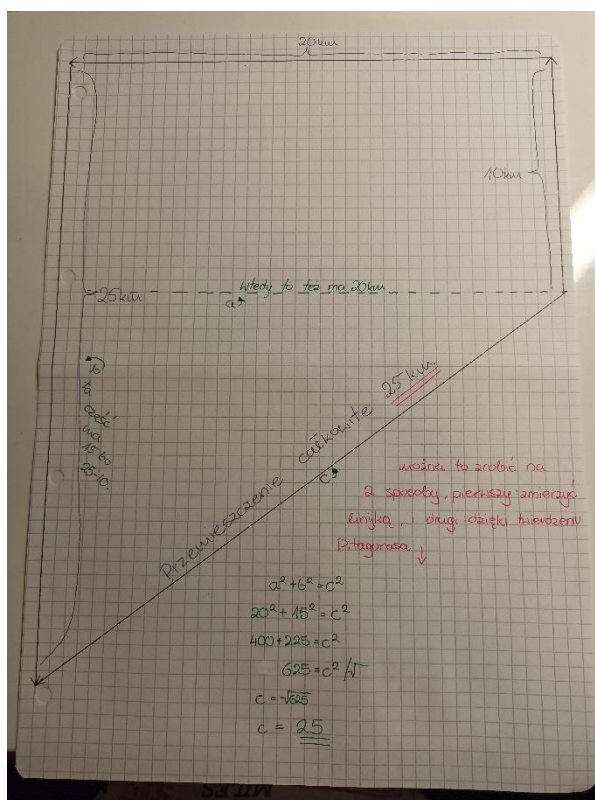 20km
10km
25km
Wtedy to też ma 20km
a
b
ta
część
ma
15 bo
25-10.
Przemieszczenie całkowite 25km.
c
można to zrobić na
2 sposoby, pierwszy zmierzyć
linijką, i drugi dzięki twierdzeniu
Pitagorasa ↓
a²+b²=c²
20²+15²=c²
400+225=c²
625=c² /√
c = √625
c = 25
MILES